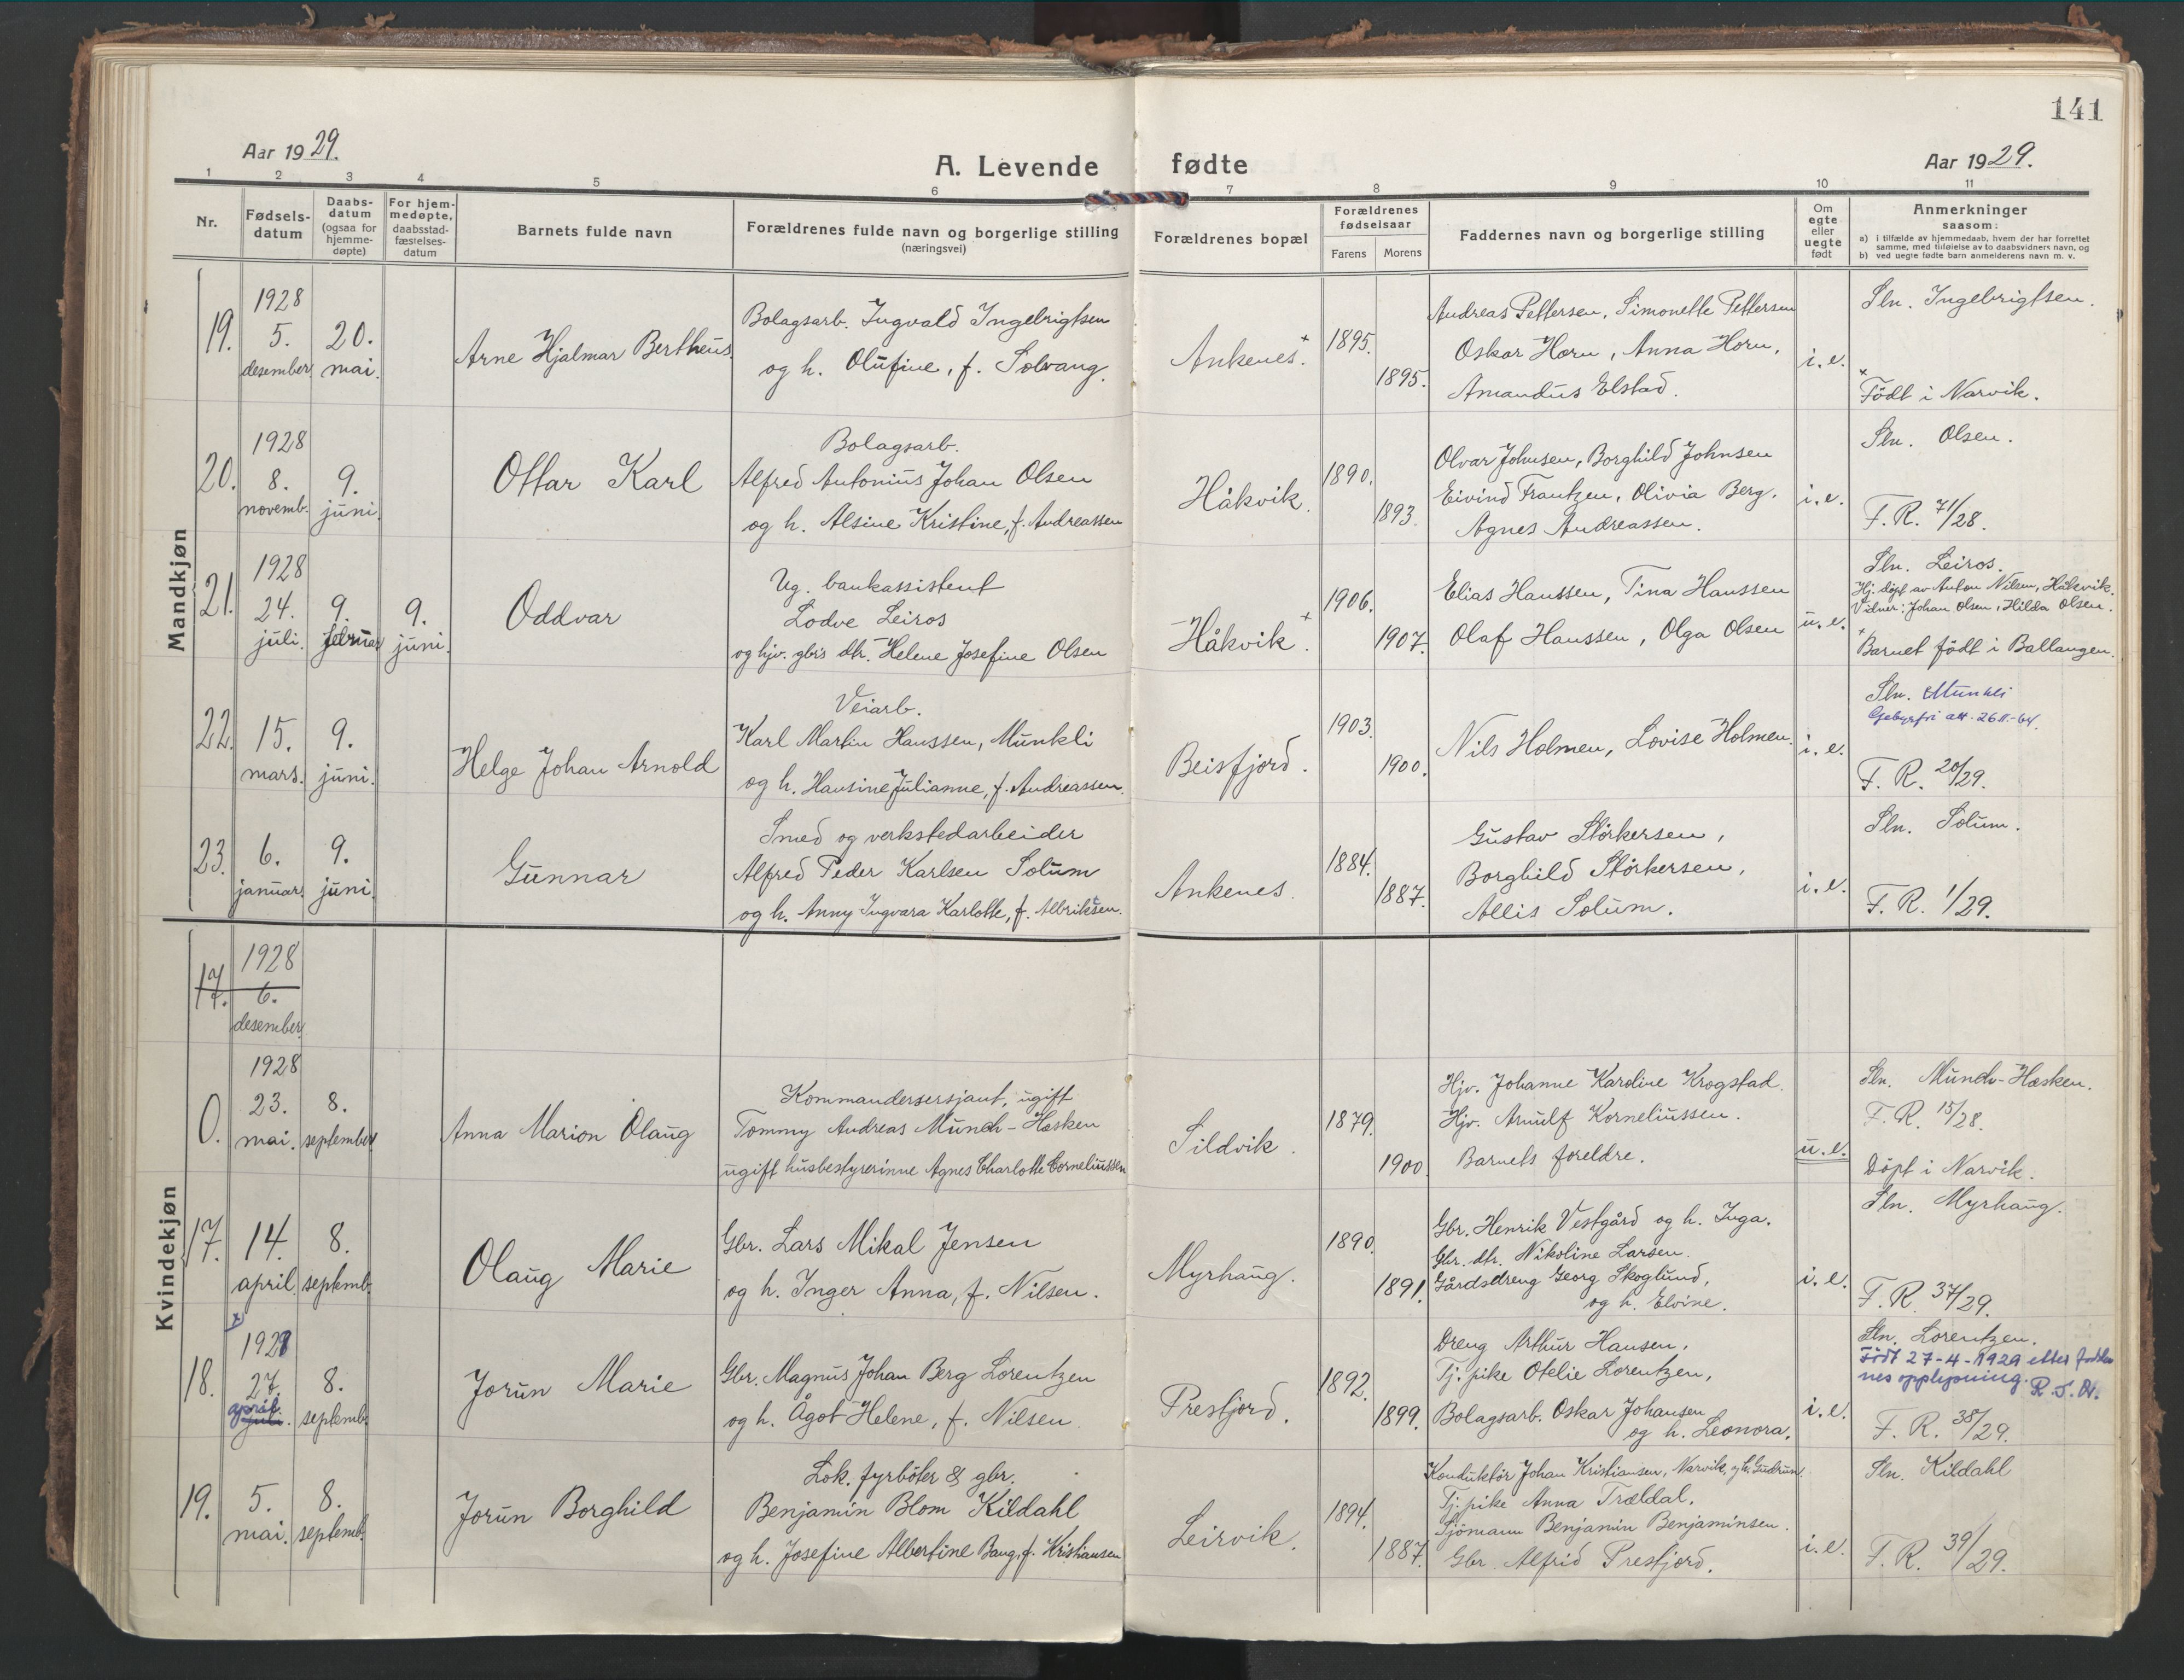 141
Aar 1929.
A. Levende fødte
Aar 1929.
1 2 3 4 5 6 7 8 9 10 11
Nr.
Fødsels-
datum
Daabs-
datum
(ogsaa for
hjemme-
døpte)
For hjem-
medøpte,
daabsstad-
fæstelses-
datum
Barnets fulde navn
Forældrenes fulde navn og borgerlige stilling
(næringsvei)
Forældrenes bopæl
Forældrenes
fødselsaar
Farens Morens
Faddernes navn og borgerlige stilling
Om
egte
eller
uegte
født
Anmerkninger
saasom:
a) I tilfælde av hjemmedaab, hvem der har forrettet
samme, med tilføielse av to daabsvidners navn, og
b) ved uegte fødte barn anmelderens navn m. v.
Mandkjøn
19.
1928
5.
desember
20.
mai.
Arne Hjalmar Bertheus.
Bolagsarb. Ingvald Ingebrigtsen
og h. Olufine, f. Solvang.
Ankenes.+
1895.
1895.
Andreas Pettersen, Simonette Pettersen
Oskar Horn, Anna Horn,
Amandus Elstad.
i.e.
Sln. Ingebrigtsen.
+
Födt i Narvik.
20.
1928
8.
novemb.
9.
juni.
Ottar Karl
Bolagsarb.
Alfred Antonius Johan Olsen
og h. Alsine Kristine, f. Andreassen
Håkvik.
1890.
1893.
Olvar Johnsen, Borghild Johnsen
Eivind Frantzen, Olivia Berg.
Agnes Andreassen.
i.e.
Sln. Olsen.
F. R. 71/28.
21.
1928
24.
juli.
9.
februar
9.
juni.
Oddvar
Ug. bankassistent
Lodve Leiros
og hjv. gbr's dtr. Helene Josefine Olsen
Håkvik.+
1906.
1907.
Elias Hanssen, Tina Hanssen
Olaf Hanssen, Olga Olsen
u.e.
Sln. Leiros.
Hj. döpt av Anton Nilsen, Håkvik.
Vidner: Johan Olsen, Hilda Olsen.
+
Barnet födt i Ballangen.
22.
15.
mars.
9.
juni.
Helge Johan Arnold
Veiarb.
Karl Martin Hanssen, Munkli
og h. Hansine Julianne, f. Andreassen.
Beisfjord.
1903.
1900.
Nils Holmen, Lovise Holmen.
i.e.
Sln. Munkli
Gebyrfri att. 26.11.-64.
F. R. 20/29.
23.
6.
januar.
9.
juni.
Gunnar
Smed og verkstedarbeider
Alfred Peder Karlsen Solum
og h. Anny Ingvara Karlotte, f. Albriktsen.
Ankenes.
1884.
1887.
Gustav Störkersen,
Borghild Störkersen,
Allis Solum.
i.e.
Sln. Solum.
F. R. 1/29.
Kvindekjøn
17.
1928
6.
desember
0.
1928
23.
mai.
8.
september
Anna Marion Olaug
Kommandersersjant, ugift
Tommy Andreas Munch-Hæsken
ugift husbestyrerinne Agnes Charlotte Corneliussen
Sildvik.
1879.
1900.
Hjv. Johanne Karoline Krogstad.
Hjv. Arnulf Korneliussen.
Barnets foreldre.
u.e.
Sln. Munch-Hæsken.
F. R. 15/28.
Döpt i Narvik.
17.
14.
april.
8.
septemb.
Olaug Marie
Gbr. Lars Mikal Jensen
og h. Inger Anna, f. Nilsen.
Myrhaug.
1890.
1891.
Gbr. Henrik Vestgård og h. Inga.
Gbr. dtr. Nikoline Larsen.
Gårdsdreng Georg Skoglund,
og h. Elvine.
i.e.
Sln. Myrhaug.
F. R. 37/29.
18.
+
1928
27.
april.
juli.
8.
septemb.
Jorun Marie
Gbr. Magnus Johan Berg Lorentzen
og h. Ågot Helene, f. Nilsen.
Presfjord.
1892.
1899.
Dreng Arthur Hansen,
Tj. pike Otelie Lorentzen,
Bolagsarb. Oskar Johansen
og h. Leonora.
i.e.
Sln. Lorentzen.
Födt 27-4-1929 etter
nes opplysning.
F. R. 38/29.
19.
5.
mai.
8.
septemb.
Jorun Borghild
Lok. fyrböter & gbr.
Benjamin Blom Kildahl
og h. Josefine Albertine Bang, f. Kristiansen
Leirvik.
1894.
1887.
Konduktör Johan Kristiansen, Narvik, og h. Gudrun.
Tj. pike Anna Trældal.
Sjömann Benjamin Benjaminsen.
Gbr. Alfrid Presfjord.
i.e.
Sln. Kildahl
F. R. 39/29.